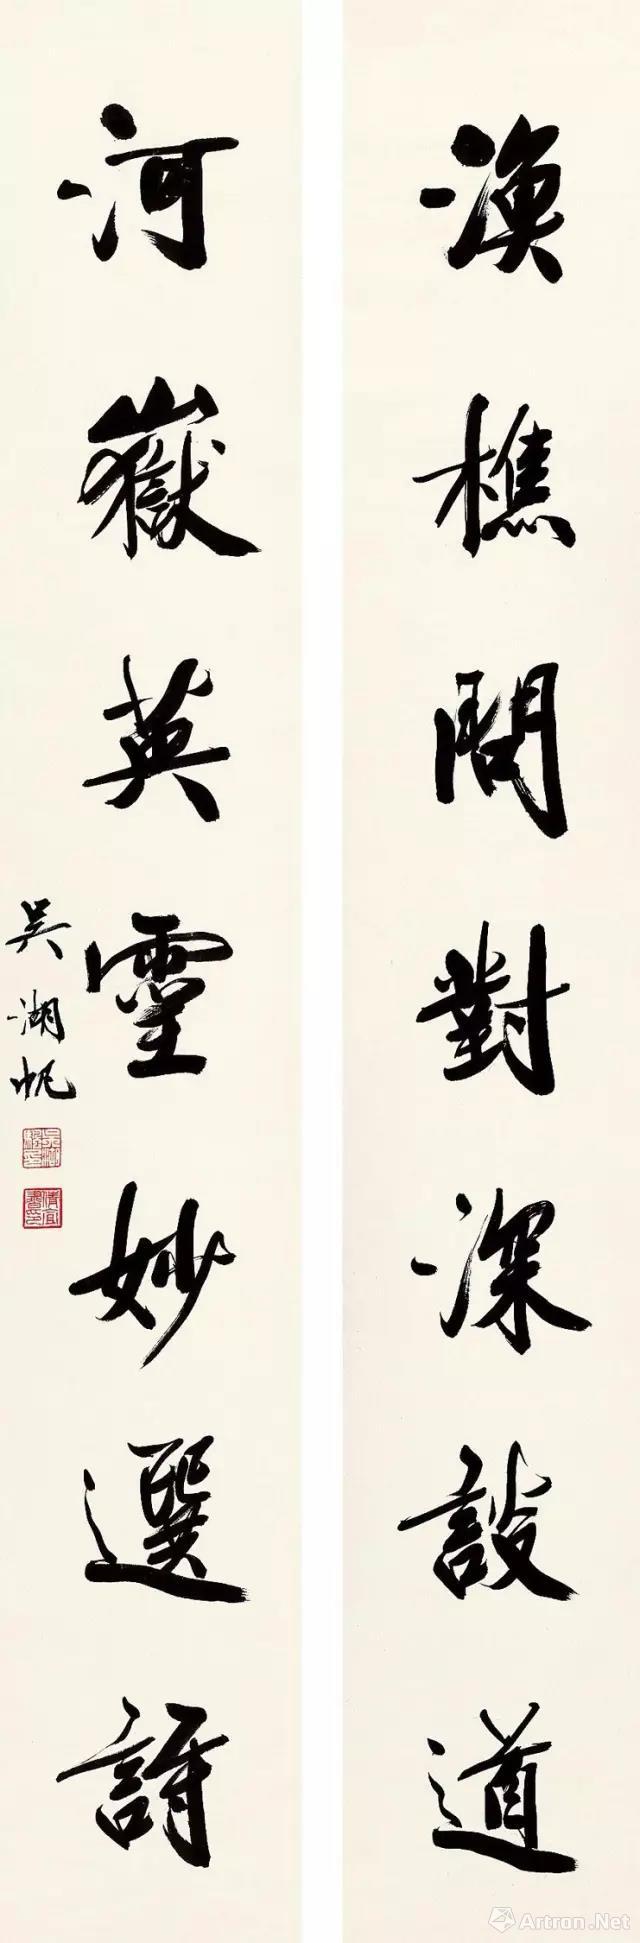 漁樵問對深談道
河嶽英靈妙選詩
吳湖帆
Artron.Net